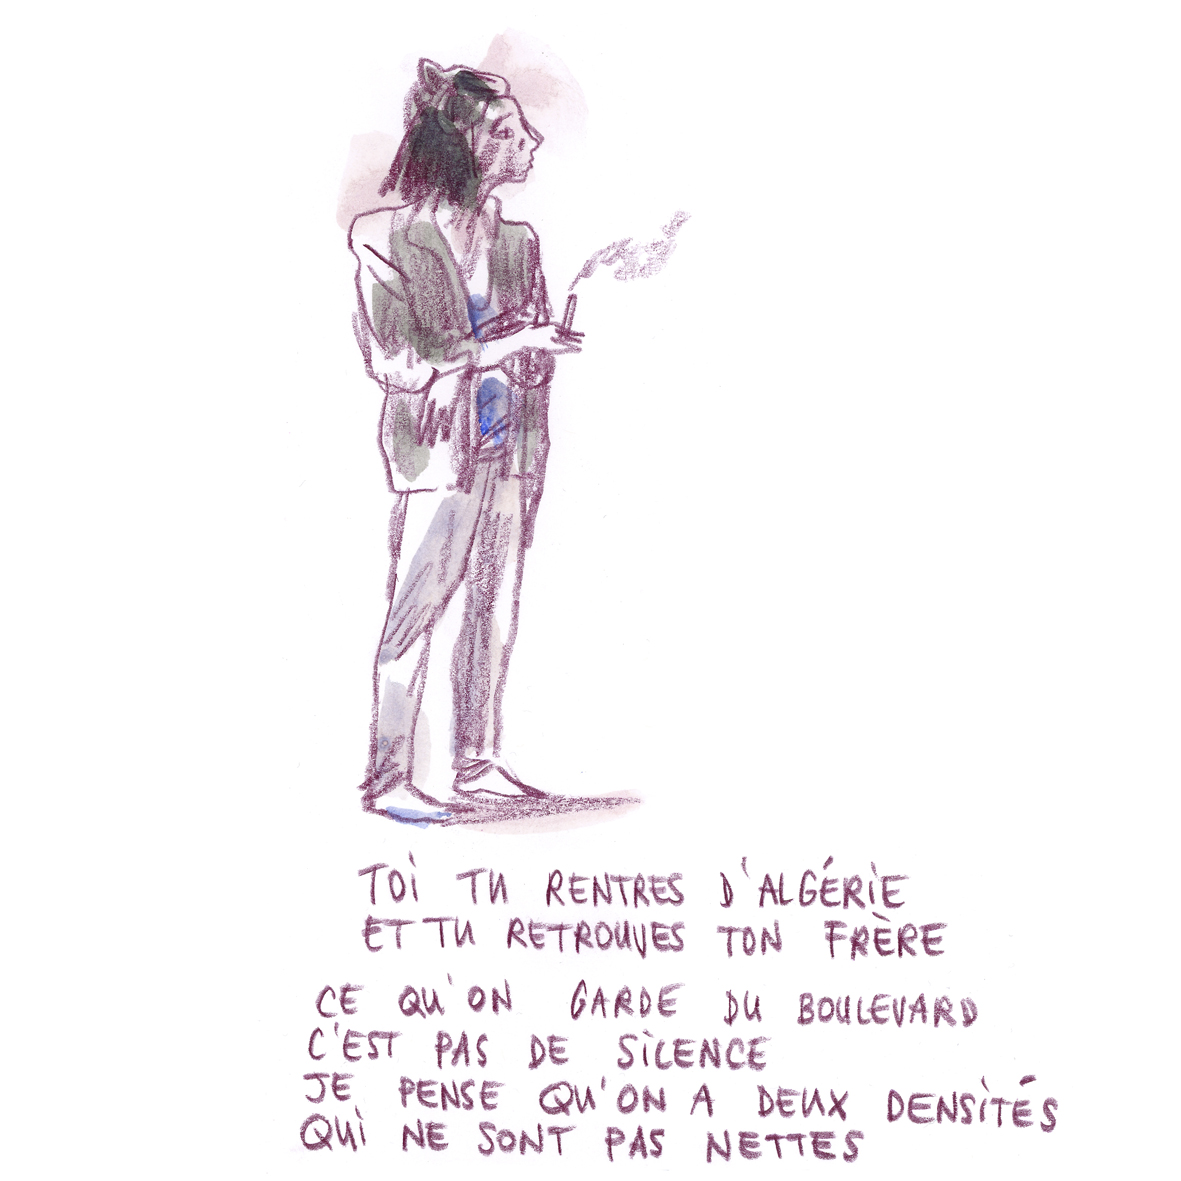 TOi TU RENTRES D'ALGÉRiE
ET TU RETROUVES TON FRÈRE
CE QU'ON GARDE DU BOULEVARD
C'EST PAS DE SiLENCE
JE PENSE QU'ON A DEUX DENSiTÉS
QUi NE SONT PAS NETTES